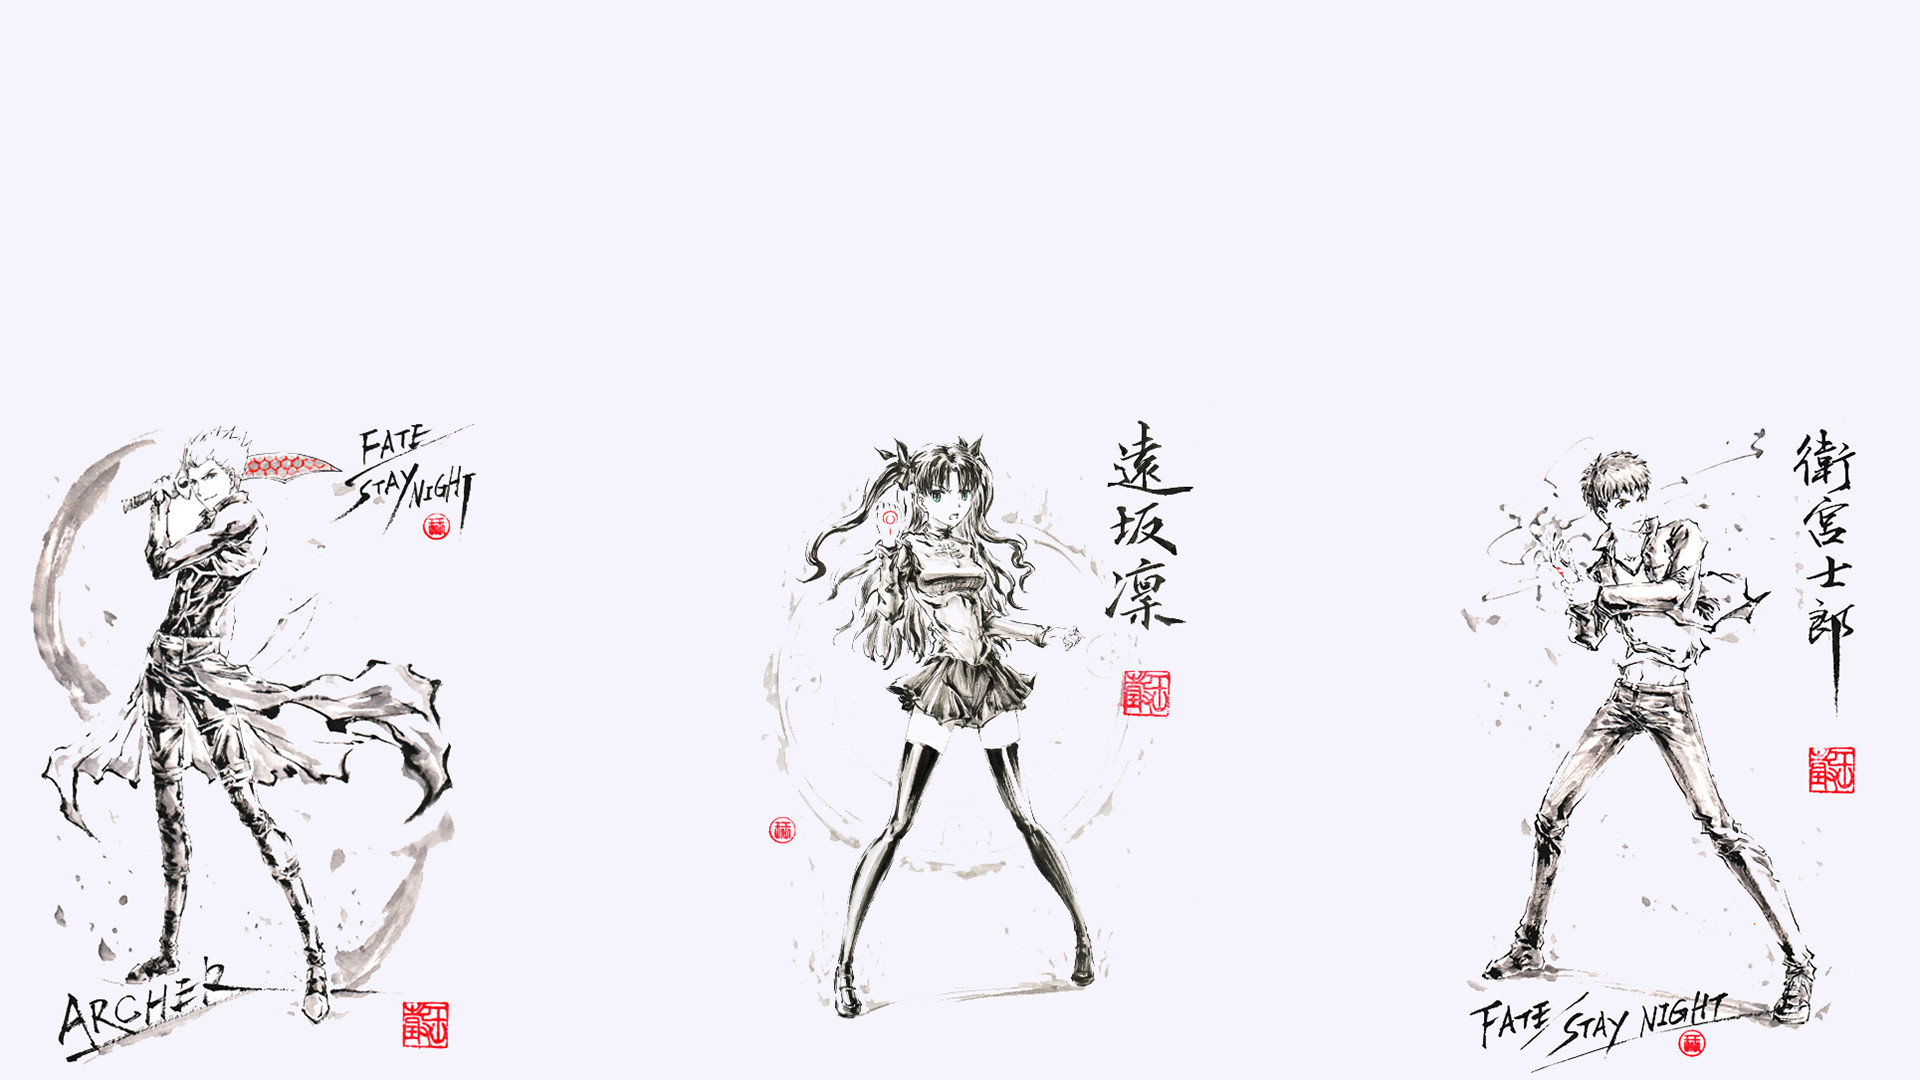 FATE
STAY NIGHT
ARCHER
遠坂凛
衛宮士郎
FATE STAY NIGHT